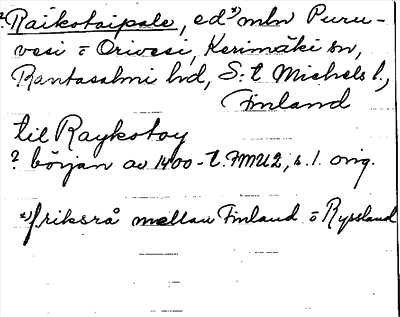 ? Raikotaipale, ed*) mln Puru-
vesi o Orivesi, Kerimäki sn,
Rantasalmi hd, S:t Michels l.,
Finland
til Raykotoy
? början av 1400-t. FMU2, s. 1. orig.
*) friksrå mellan Finland o Ryssland